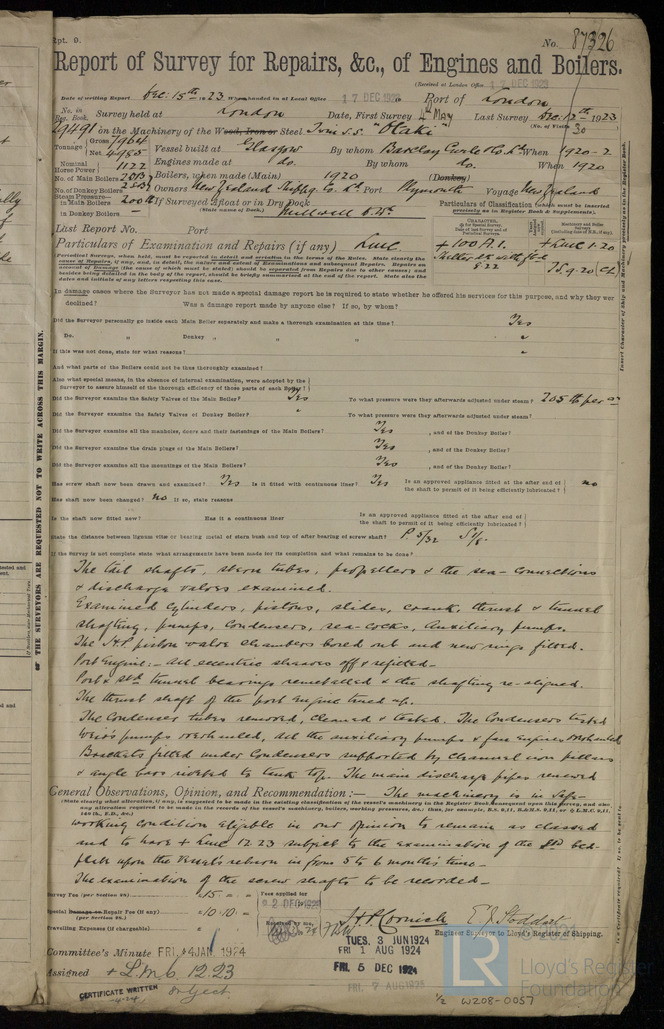 Rpt. 9.
No. 87326
Report of Survey for Repairs, &c., of Engines and Boilers.
(Received at London Office 17 DEC 1923
Date of writing Report Dec. 15th 1923 When handed in at Local Office 17 DEC 1923 Port of London
No. in Reg. Book. Survey held at London Date, First Survey 4 May Last Survey Dec. 12th 1923
29491 on the Machinery of the Wood, Iron or Steel S.S. "Otaki" (No. of Visits 30
Tonnage Gross 7964 Net 4985 Vessel built at Glasgow By whom Barclay Curle & Co. Ld When 1920-2
Nominal Horse Power 1122 Engines made at do. By whom do. When 1920
No. of Main Boilers Boilers, when made (Main) 1920 (Donkey)
No. of Donkey Boilers Owners New Zealand Shipping Co. Ld Port Plymouth Voyage New Zealand
Steam Pressure in Main Boilers 200 lb If Surveyed Afloat or in Dry Dock
in Donkey Boilers (State name of Dock.) Millwall
Particulars of Classification (which must be inserted precisely as in Register Book & Supplements).
Last Report No. Port
Particulars of Examination and Repairs (if any) LMC
+100A1.
+LMC 1.20
8.22
TS 9.20 (CL)
In damage cases where the Surveyor has not made a special damage report he is required to state whether he offered his services for this purpose, and why they were declined? Was a damage report made by anyone else? If so, by whom?
Did the Surveyor personally go inside each Main Boiler separately and make a thorough examination at this time? Yes
Do. " Donkey " " " "
If this was not done, state for what reasons?
And what parts of the Boilers could not be thus thoroughly examined?
Also what special means, in the absence of internal examination, were adopted by the Surveyor to assure himself of the thorough efficiency of those parts of each Boiler?
Did the Surveyor examine the Safety Valves of the Main Boiler? Yes To what pressure were they afterwards adjusted under steam? 205 lb per □"
Did the Surveyor examine the Safety Valves of Donkey Boiler? To what pressure were they afterwards adjusted under steam?
Did the Surveyor examine all the manholes, doors and their fastenings of the Main Boilers? Yes , and of the Donkey Boiler?
Did the Surveyor examine the drain plugs of the Main Boilers? Yes , and of the Donkey Boiler?
Did the Surveyor examine all the mountings of the Main Boilers? Yes , and of the Donkey Boiler?
Has screw shaft now been drawn and examined? Yes Is it fitted with continuous liner? Yes Is an approved appliance fitted at the after end of the shaft to permit of it being efficiently lubricated? no
Has shaft now been changed? no If so, state reasons
Is the shaft now fitted new? Has it a continuous liner Is an approved appliance fitted at the after end of the shaft to permit of it being efficiently lubricated?
State the distance between lignum vitæ or bearing metal of stern bush and top of after bearing of screw shaft? P. 5/32 S 1/8.
If the Survey is not complete state what arrangements have been made for its completion and what remains to be done?
The tail shafts, stern tubes, propellers & the sea-connections
& discharge valves examined.
Examined cylinders, pistons, slides, crank, thrust & tunnel
shafting, pumps, condensers, sea-cocks, auxiliary pumps.
The H.P. piston valve chambers bored out and new rings fitted.
Port Engine:- All eccentric sheaves off & refitted-
Port & Stb tunnel bearings remetalled & the shafting re-aligned.
The thrust shaft of the port Engine trued up.
The Condenser tubes removed, cleaned & tested. The Condensers tested
Weir's pumps overhauled, all the auxiliary pumps & fan engines overhauled
Brackets fitted under Condensers supported by channel iron pillars
& angle bars riveted to tank top. The main discharge pipes renewed
General Observations, Opinion, and Recommendation:- The machinery is in safe
working condition eligible in our opinion to remain as classed
and to have + LMC 12.23 subject to the examination of the bed-
plate upon the Vessel's return in from 5 to 6 months time-
The examination of the screw shafts to be recorded-
Survey Fee (per Section 28) £15 - - Fees applied for
Special Damage or Repair Fee (if any) £10.10 -
(per Section 28)
Travelling Expenses (if chargeable) £
Received by me,
H.P. Cornish E. J. Stoddart
Engineer Surveyor to Lloyd's Register of Shipping.
Committee's Minute FRI. 4 JAN 1924
TUES. 3 JUN 1924
FRI 1 AUG 1924
FRI. 5 DEC 1924
FRI. 7 AUG 1925
Assigned + L.M.C. 12.23
Subject
CERTIFICATE WRITTEN
THE SURVEYORS ARE REQUESTED NOT TO WRITE ACROSS THIS MARGIN.
LR
© 2021
Lloyd's Register
Foundation
1/2 W208-0057